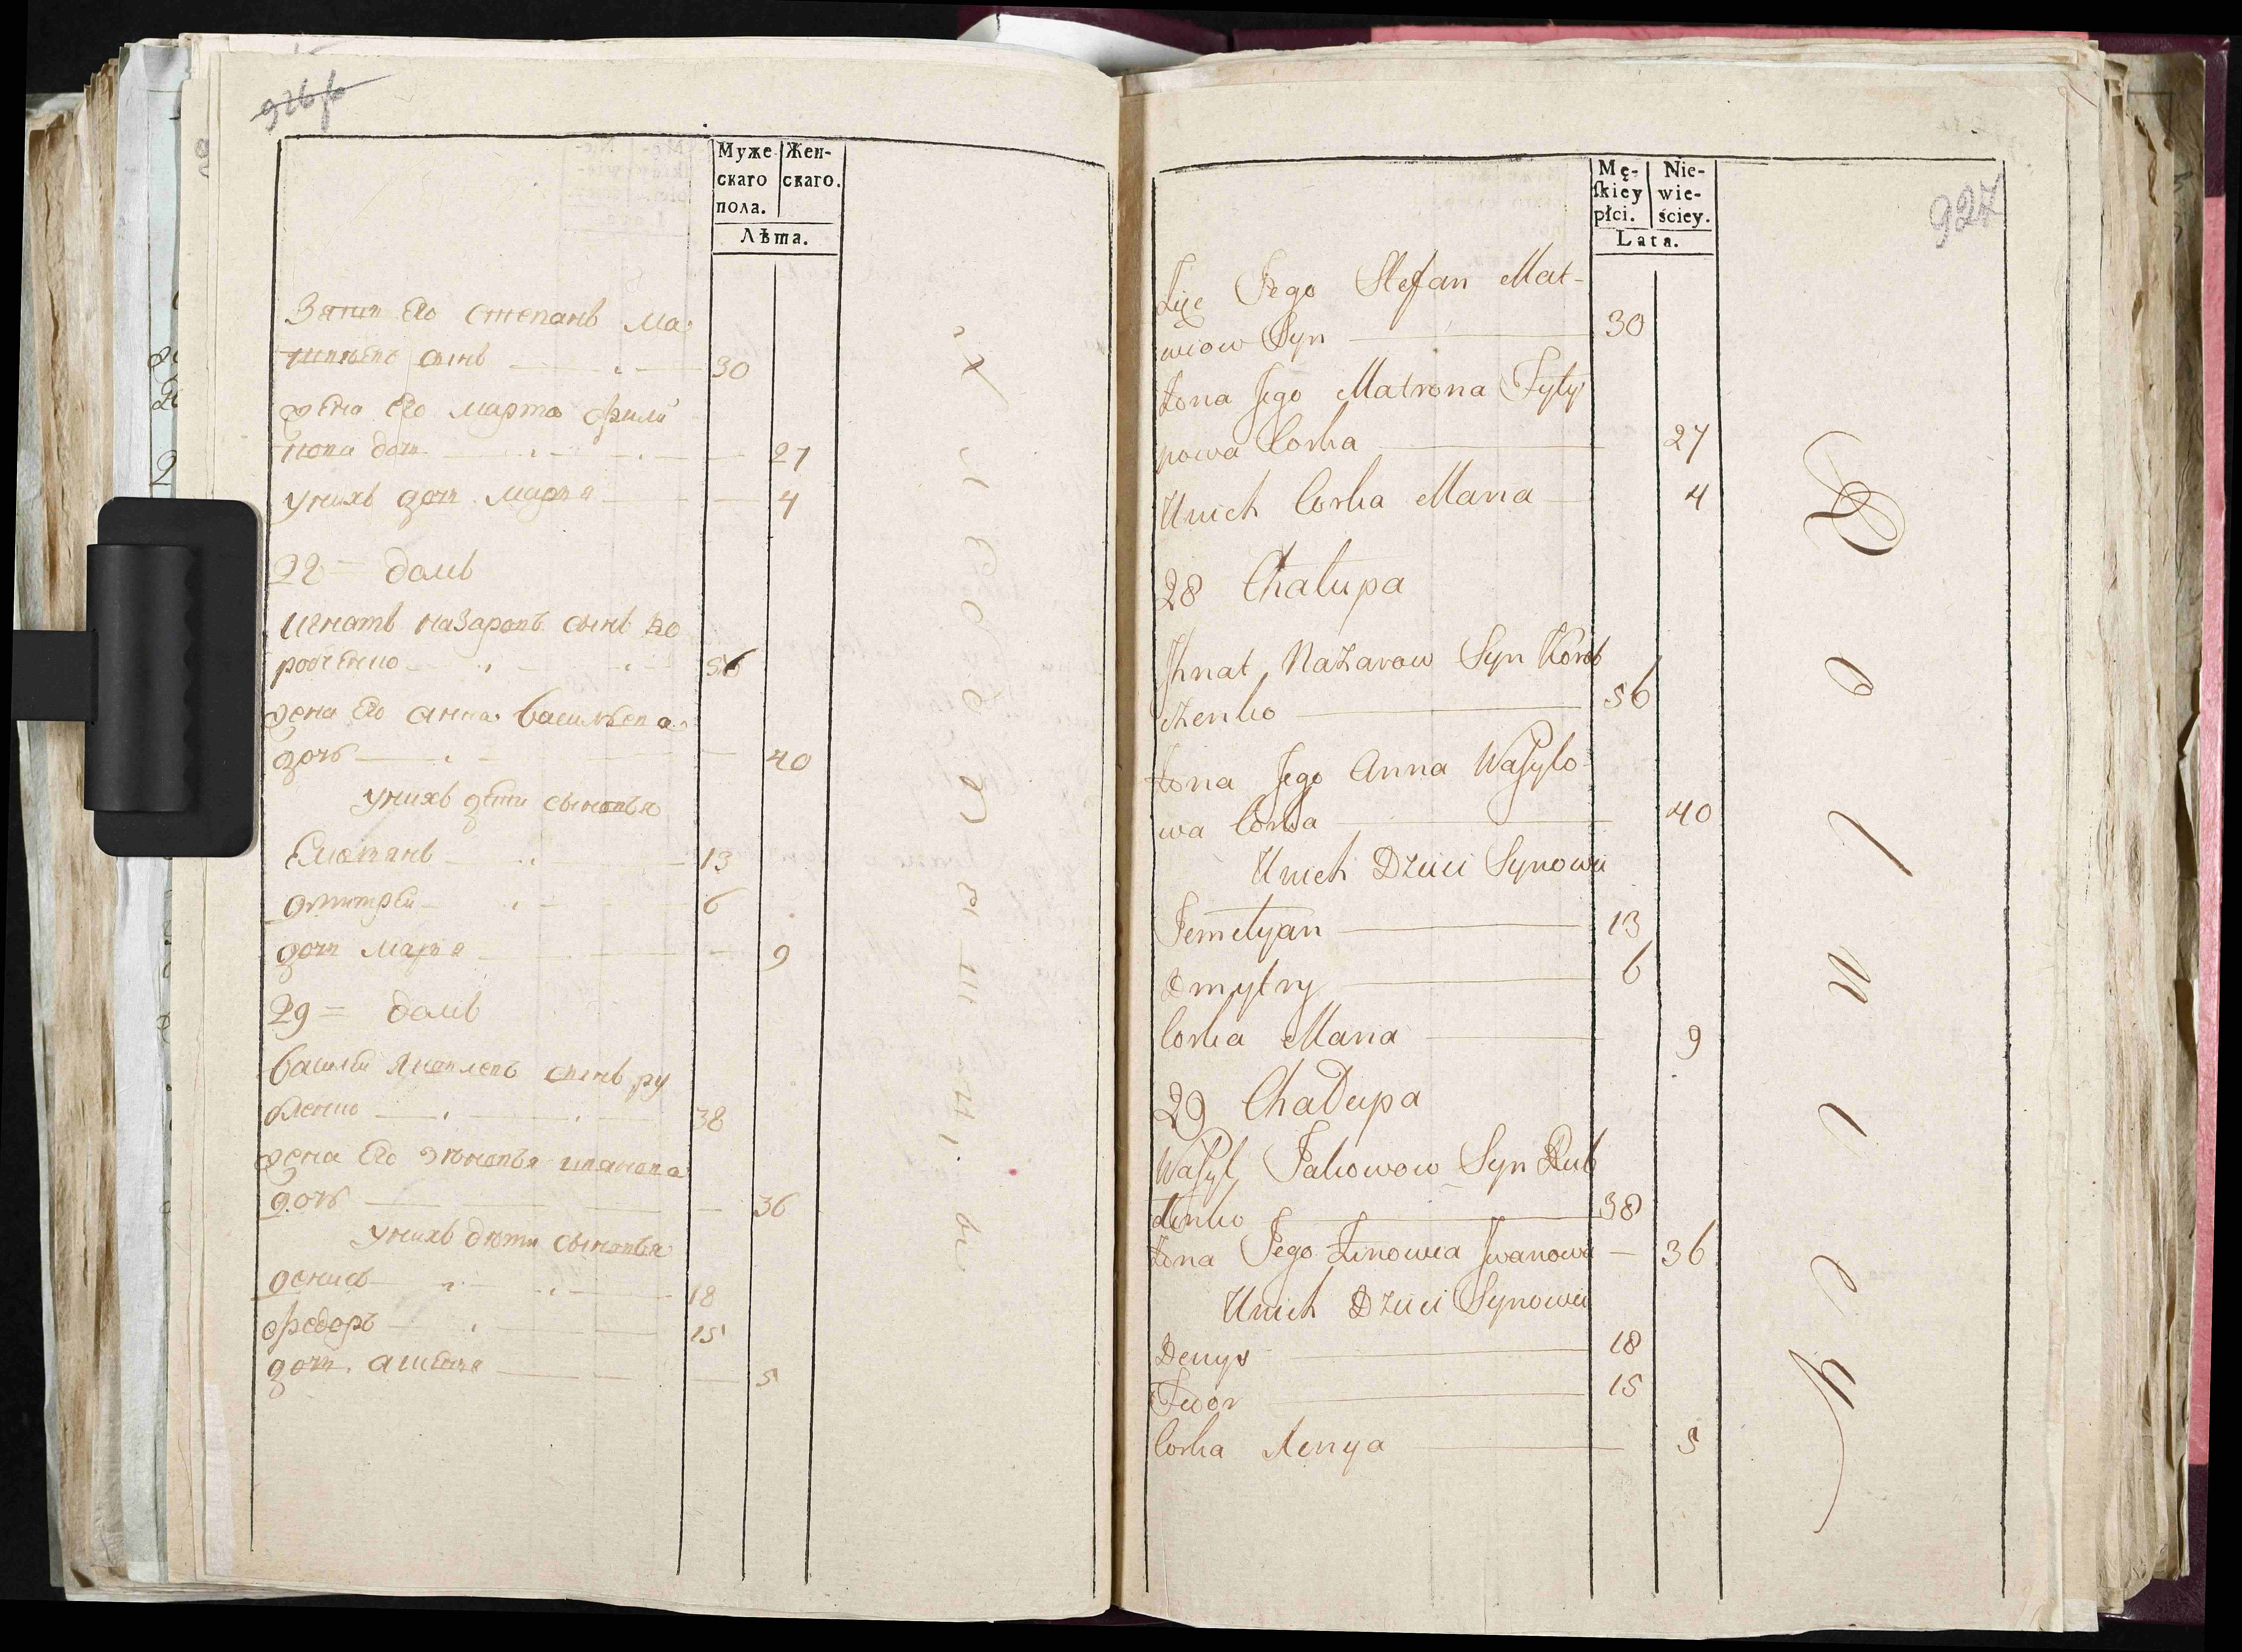 926/6
Муже Жен-
скаго скаго.
пола.
Лѣта.
Зять Его Степанъ Ма
твѣевъ сынъ 30
жена Его марта фили
пова дочь 27
унихъ дочь марья 4
28 = домъ
игнатъ назаровъ сынъ ко
робченко 56
жена Его анна васильева
дочь 40
унихъ дѣти сыновья
Емельянъ 13
дмитрей 6
дочь марья 9
29 = домъ
василей яковлевъ сынъ ру
бленко 38
жена Его зѣновья иванова
дочь 36
унихъ дѣти сыновья
денисъ 18
федоръ 15
дочь 5
927
Mę- Nie-
ſkiey wie-
płci. ściey.
Lata.
Jego Stefan Mat-
wiow Syn 30
Żona Jego Matrona Fyly
powa Corka 27
Unich Corka Maria 4
28 Chałupa
Jhnat Nazarow Syn Korob
czenko 56
Żona Jego Anna Waſylo
wa Corka 40
Unich Dzieci Synowie
Jemelyan 13
Dmytry 6
Corka Maria 9
29 Chałupa
Waſyl Jakowow Syn Rub
lenko 38
Żona Jego Zinowia Jwanowa 36
Unich Dzieci Synowie
Denys 18
Fedor 15
Corka 5